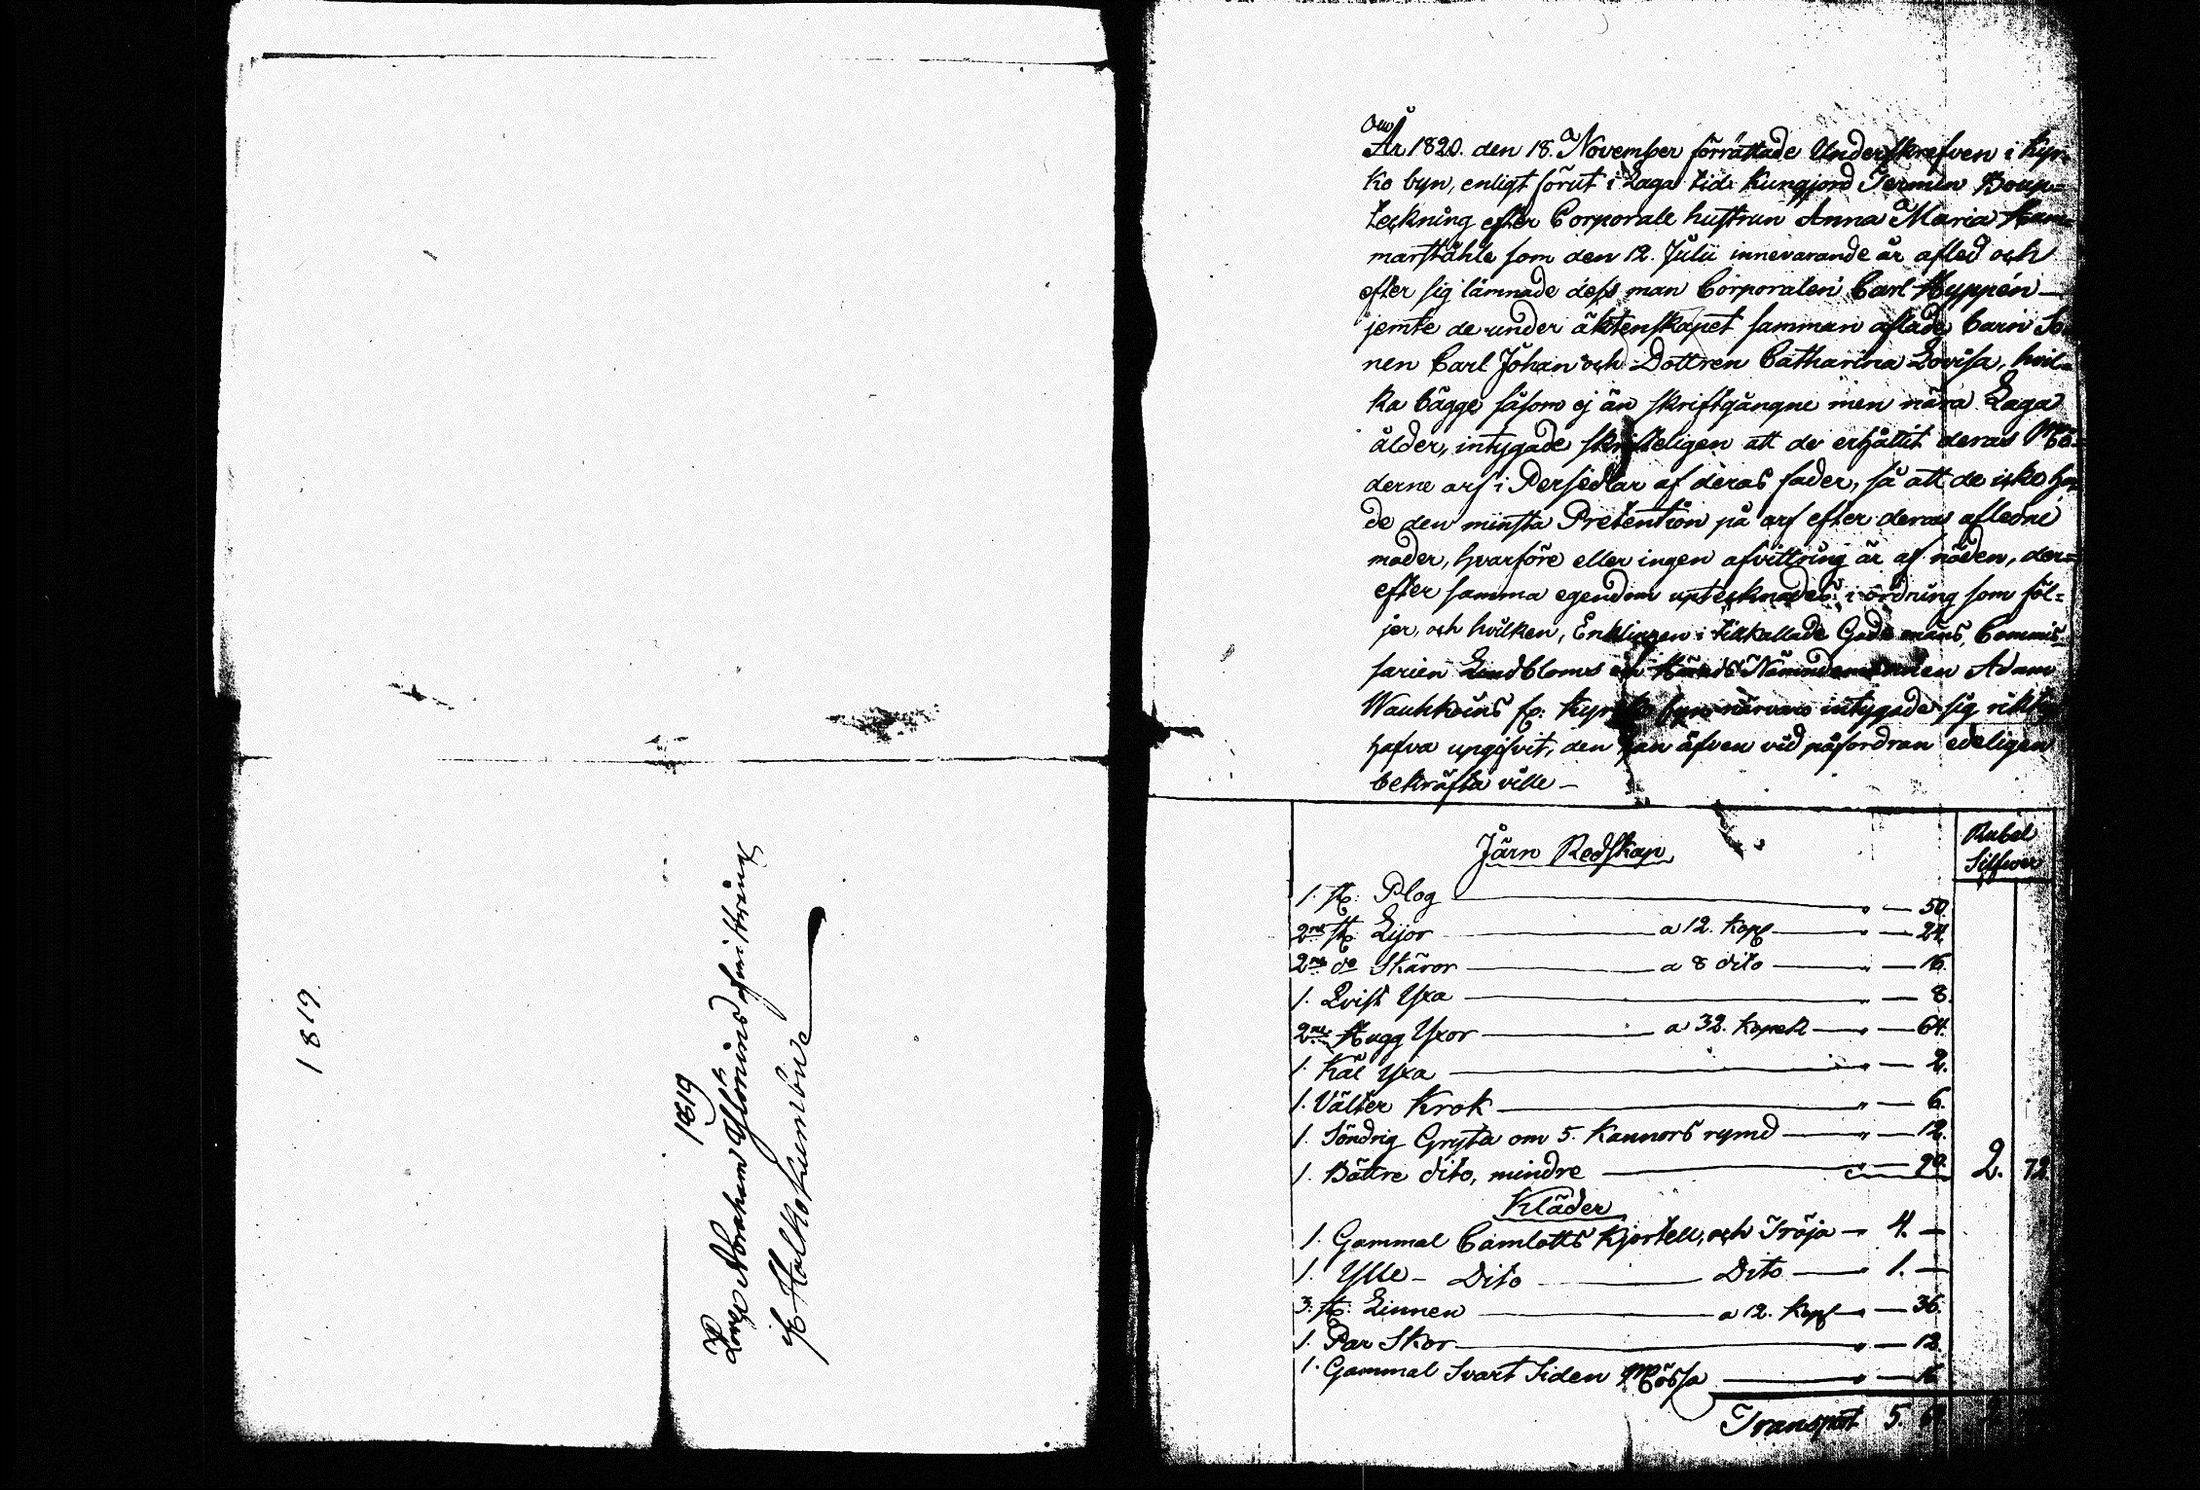 1819.
1819
Abraham
Halkokumbu
År 1820. den 18. November förrättade Underskrefven i Kyr-
ko byn, enligt förut i Laga tid Kungjord Termin Boup=
teckning efter Corporals hustrun Anna Maria Ham-
marståhle som den 12. Julii innevarande år afled och
efter sig lämnade dess man Corporalen Carl Hyppén
jemte de under äktenskapet samman aflade barn So-
nen Carl Johan och Dottren Catharina Lovisa, hvil-
ka bägge såsom ej än skriftgångne men nära Laga
ålder, intygade skrifteligen att de erhållit deras Mö-
derne arf i Persedlar af deras fader, så att de icke ha-
de den minsta Pretention på arf efter deras afledne
moder, hvarföre eller ingen afvittring är af nöden, der=
efter samma egendom uptecknades i ordning som föl=
jer, och hvilken, Enklingen i tilkallade Gode mäns, Commis-
sarien Lindbloms och Nämndemannen Adam
Wauhkoins fr. Kyrko byn närvaro intygade sig riktigt
hafva upgifvit, den han äfven vid påfordran edeligen
bekräfta ville –
Rubel
Silfwer
Järn Redskap
1. st. Plog " — 50.
2ne st. Lijor a 12. Kop " — 24.
2ne do Skäror a 8 dito " — 16.
1. Qvist Yxa " — 8.
2ne Hugg Yxor a 32. Kopek " — 64.
1. Kål Yxa " — 2.
1. Välter Krok " — 6.
1. Söndrig Gryta om 5. Kannors rymd " — 12.
1. Bättre dito, mindre " — 90. 2. 72
Kläder
1. Gammal Camlotts Kjortell, och Tröja — 4. —
1. Ylle – Dito Dito 1. —
3. st. Linnen a 12. Kop " — 36.
1. Par Skor " — 12.
1. Gammal Svart Siden Mössa " — 16
Transport 5.